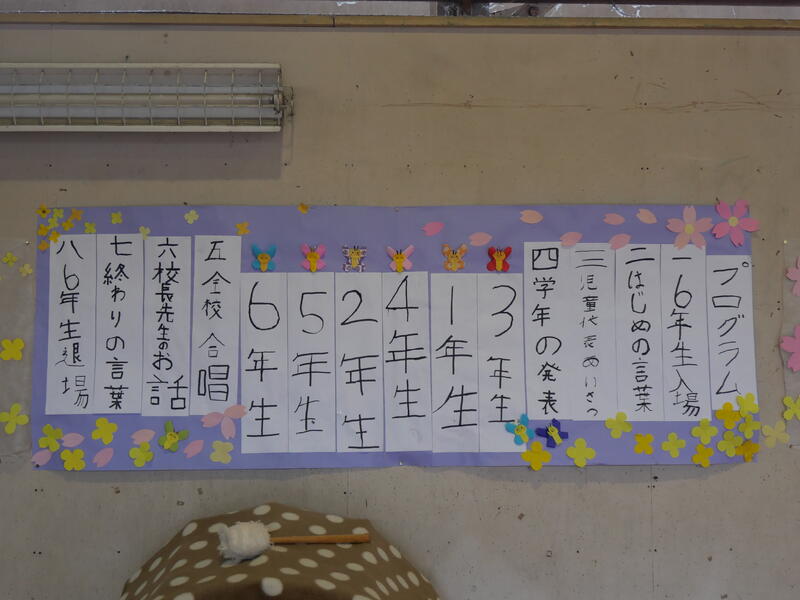 プログラム
一 6年生入場
二 はじめの言葉
三 児童代表あいさつ
四 学年の発表
3年生
1年生
4年生
2年生
5年生
6年生
五 全校合唱
六 校長先生のお話
七 終わりの言葉
八 6年生退場